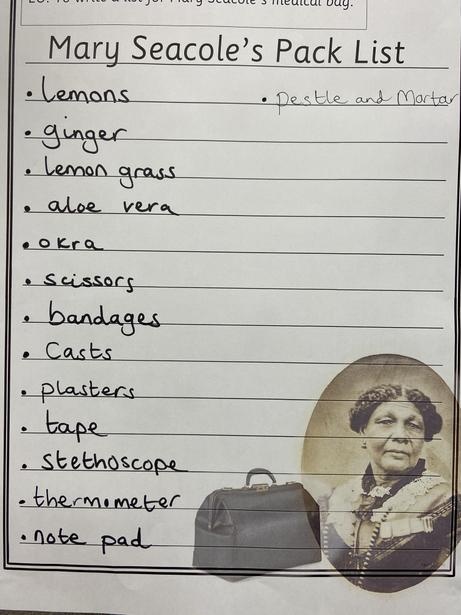 LO: To write a list for Mary Seacole's medical bag.
Mary Seacole's Pack List
• lemons
• Pestle and Mortar
• ginger
• lemon grass
• aloe vera
• okra
• scissors
• bandages
• Casts
• plasters
• tape
• stethoscope
• thermometer
• note pad